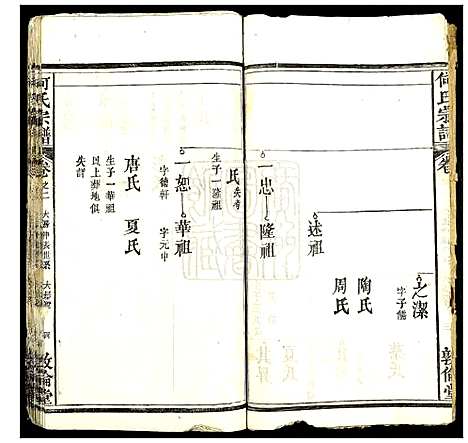 何氏宗譜
卷
之潔
字子能
陶氏
周氏
述祖
敦倫堂
一忠
隆祖
氏失考
生子一隆祖
一恕
華祖
字德軒
字元中
唐氏
夏氏
生子一華祖
以上葬地俱
失詳
何氏宗譜
卷之二
敦倫堂